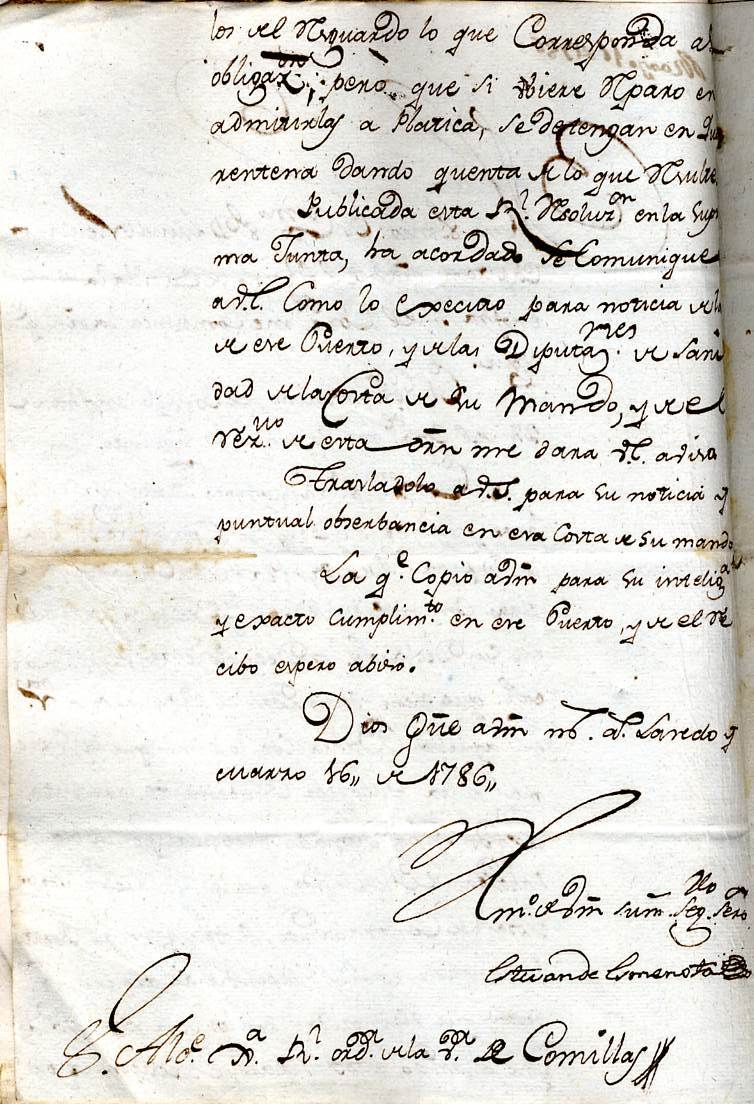 los del Resguardo lo que Corresponda a su
obligaz.on; pero que si ubiere Reparo en
admitirlas a Platica, se detengan en Qua
rentena dando quenta de lo que Resulte
Publicada esta R.l Resoluz.on en la supre
ma Junta, ha acordado se Comunique
a V.S. Como lo executo para noticia de la
de ese Puerto, y de las Diputaz.nes de Sani
dad de la Costa de su Mando, y de el
Rez.vo de esta orn me dara V.S. aviso
Trasladolo a V.S. para su noticia y
puntual obserbancia en esa Costa de su mando
La q.e Copio a Vm para su intelig.a
y exacto Cumplim.to en ese Puerto, y de el Re
cibo espero abiso.
Dios Gue a Vm m.s a.s Laredo y
Marzo 16,, de 1786,,
Am.o de Vm su m. Seg.ro Sero
S. Alc.e R.l ord.o de la V.a de Comillas